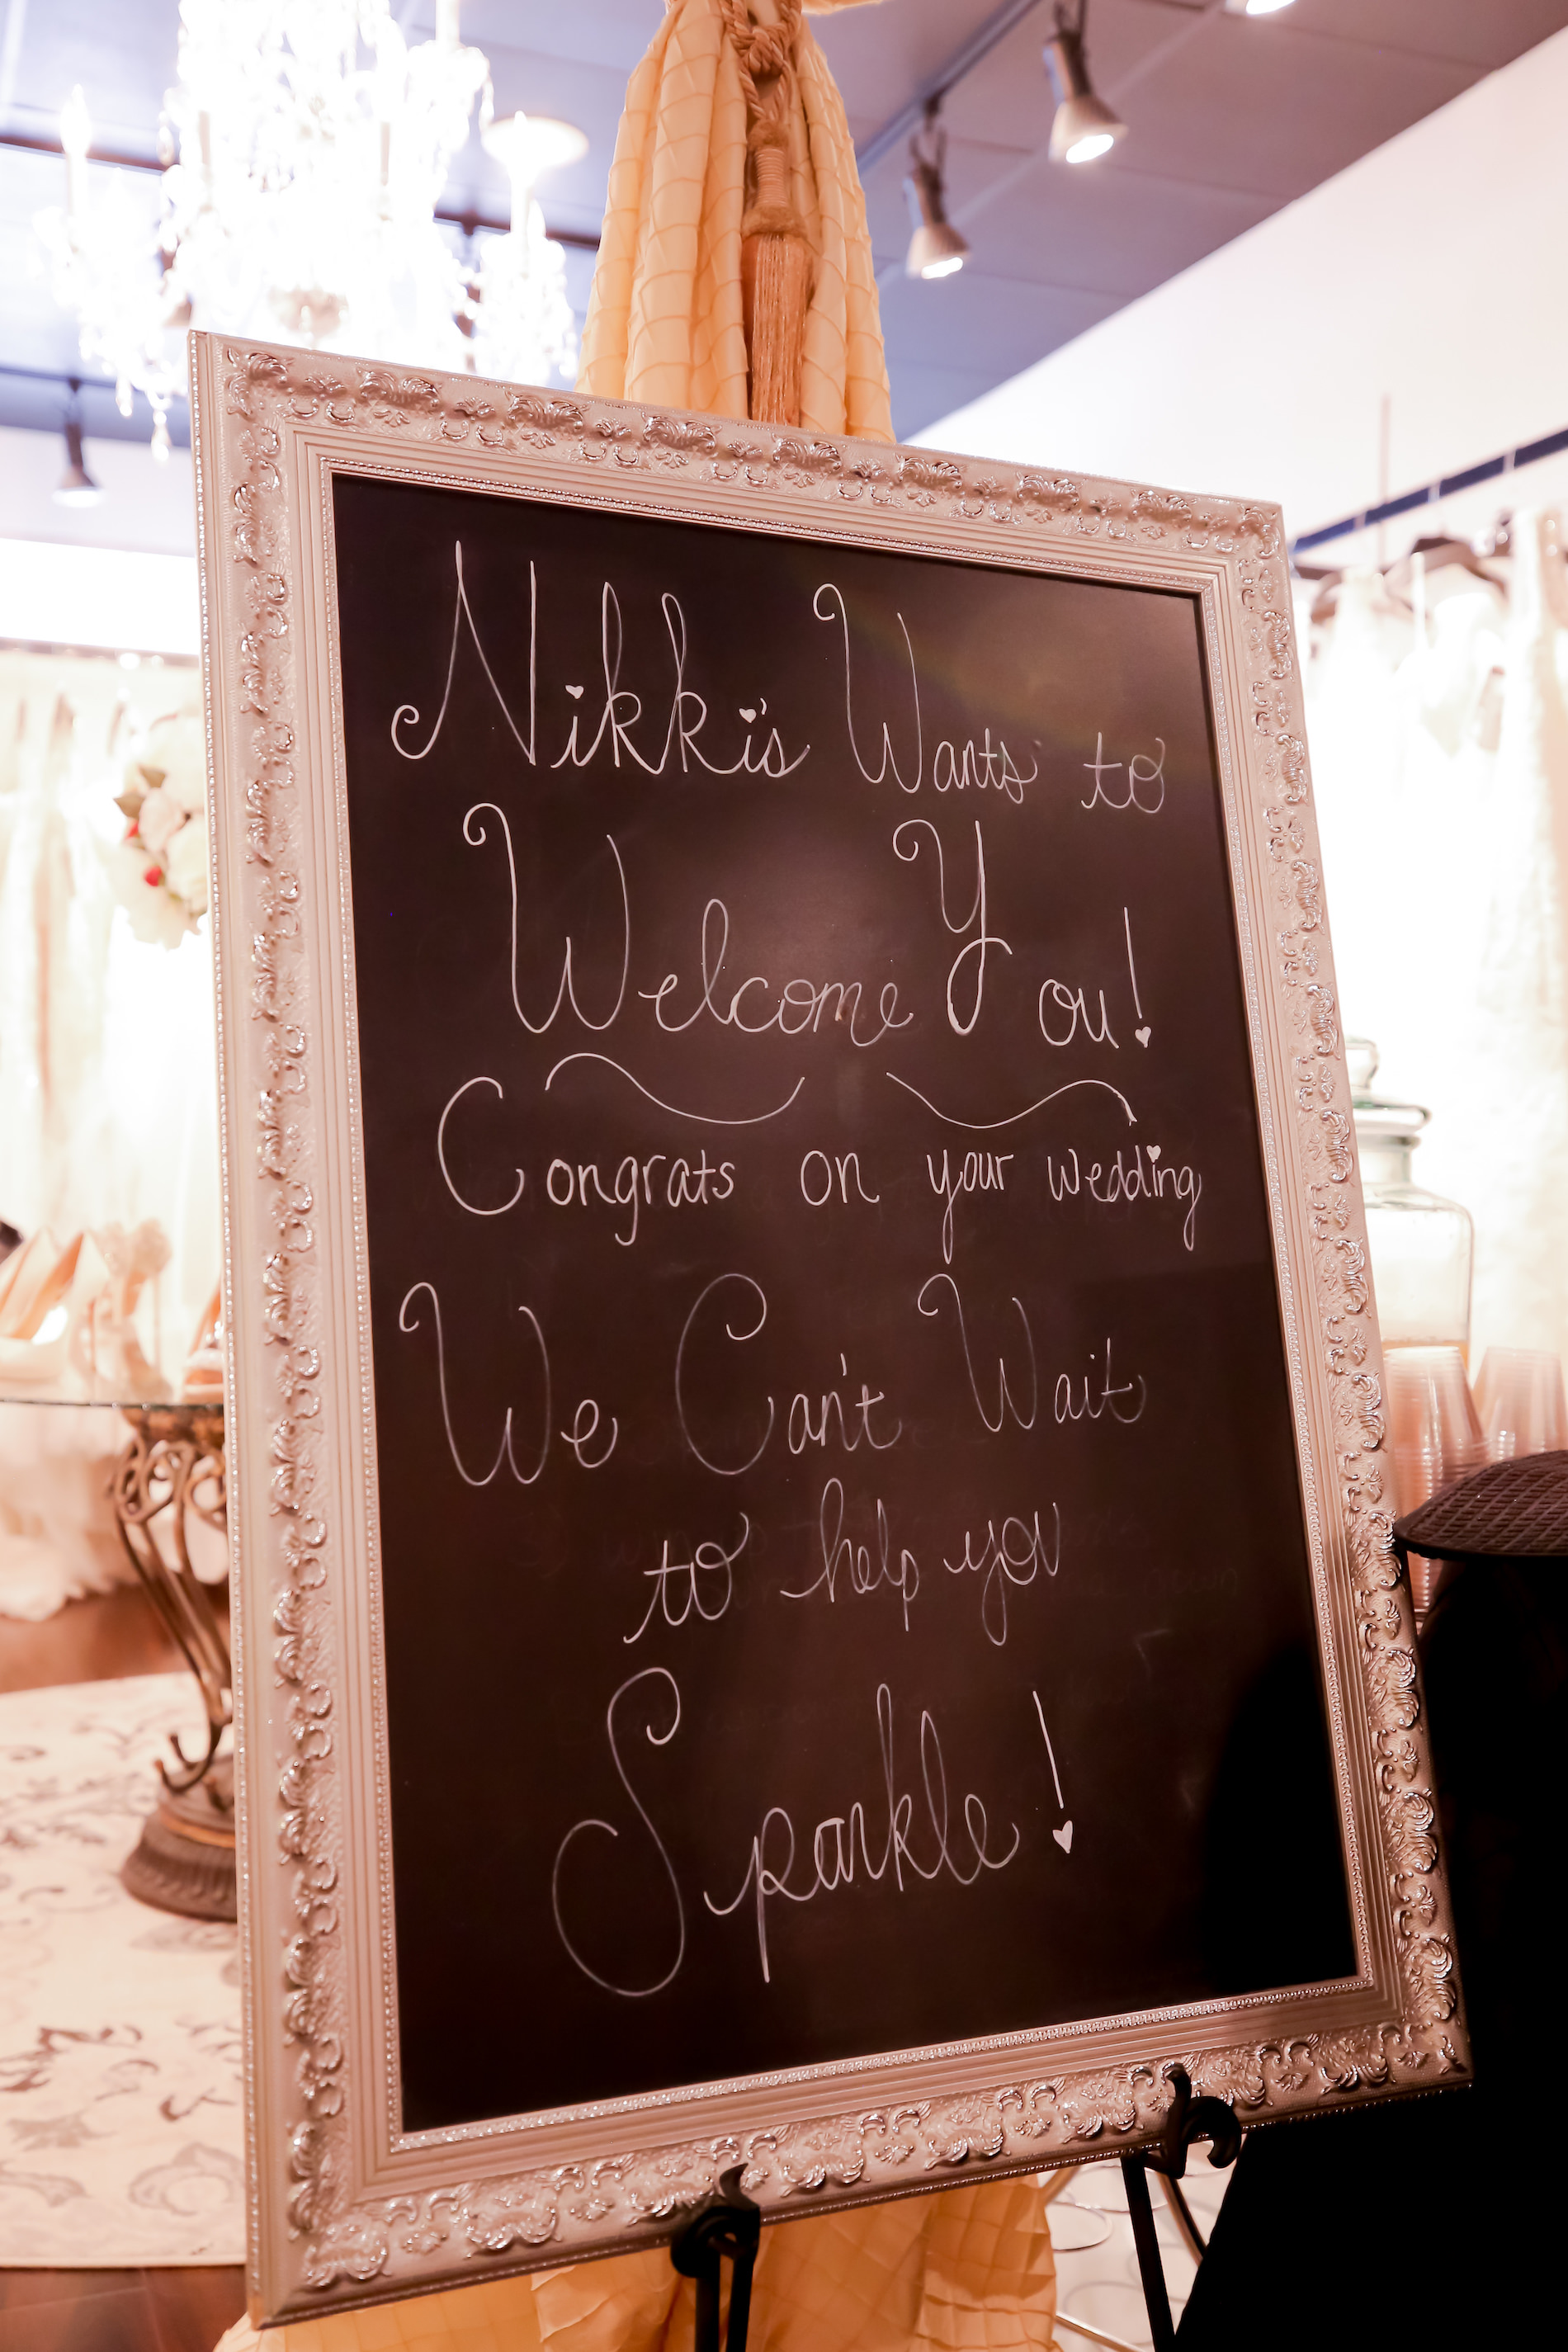 Nikki's Wants to
Welcome You!
Congrats on your wedding
We Can't Wait
to help you
Sparkle!